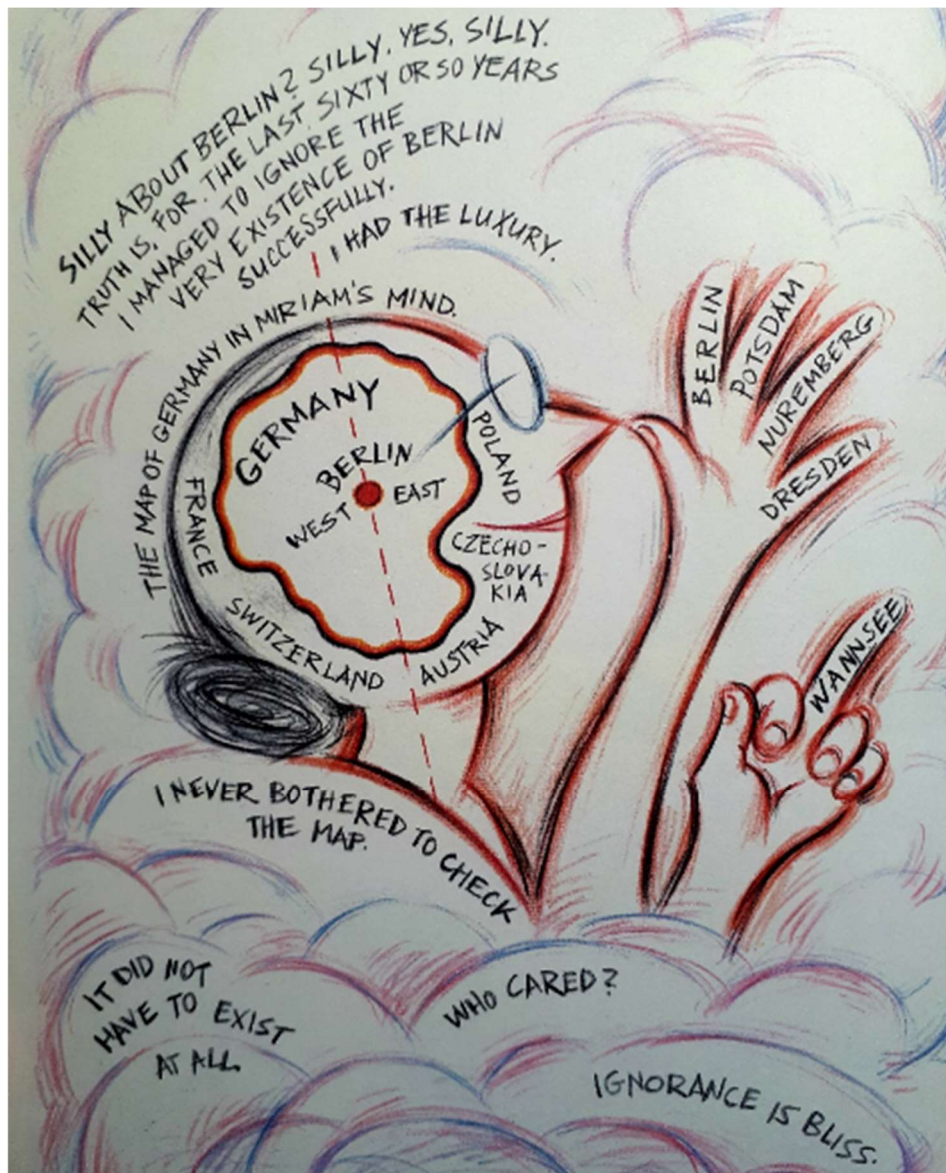 SILLY ABOUT BERLIN? SILLY. YES, SILLY.
TRUTH IS, FOR THE LAST SIXTY OR SO YEARS
I MANAGED TO IGNORE THE
VERY EXISTENCE OF BERLIN
SUCCESSFULLY.
I HAD THE LUXURY.
THE MAP OF GERMANY IN MIRIAM'S MIND.
GERMANY
BERLIN
WEST EAST
FRANCE
SWITZERLAND
AUSTRIA
CZECHO-
SLOVA-
KIA
POLAND
BERLIN
POTSDAM
NUREMBERG
DRESDEN
WANNSEE
I NEVER BOTHERED TO CHECK
THE MAP.
IT DID NOT
HAVE TO EXIST
AT ALL.
WHO CARED?
IGNORANCE IS BLISS.